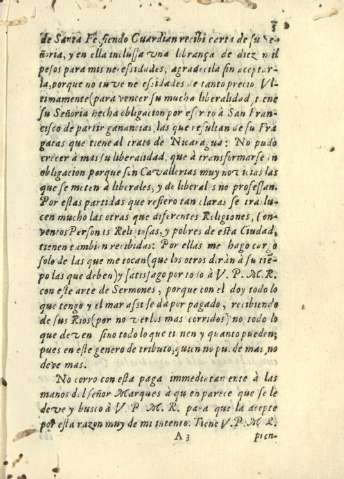 3
de Santa Fè siendo Guardian recibi carta de su Se-
ñoria, y en ella inclussa vna librança de diez mil
pesos para mis necesidades, agradecila sin aceptar-
la, porque no tuve necesidades de tanto precio. Vl-
timamente (para vencer su mucha liberalidad, tiene
su Señoria hecha obligacion por escrito à San Fran-
cisco de partir ganancias, las que resultan de su Fra-
gata que tiene al trato de Nicaragua: No pudo
crecer à mas su liberalidad, que à transformarse in
obligacion porque sin Cavallerias muy no
que se miten à liberales, y de liberal s no professan.
Por estas partidas que refiero tan claras se traslu-
cen mucho las otras que diferentes Religiones, Con-
ventos Personas Religiosas, y pobres de esta Ciudad,
tienen tambien recibidas: Por ellas me hago cargo
solo de las que me tocan (que los otros diràn à su tiem-
po las que deben) y satisfago por todo à V. P. M. R.
con este arte de Sermones, porque con el doy todo lo
que tengo y el mar assi se dà por pagado, recibiendo
de sus Rios (por no verlos mas corridos) no todo lo
que deven sino todo lo que tienen y quanto pueden,
pues en este genero de tributo, quien no puede mas, no
deve mas.
No corro con esta paga immediatamente à las
manos del señor Marques à quien parece que se le
deve y busco à V. P. M. R. para que la acepte
por esta razon muy de mi intento. Tiene V. P. M. R.
A 3 pien-